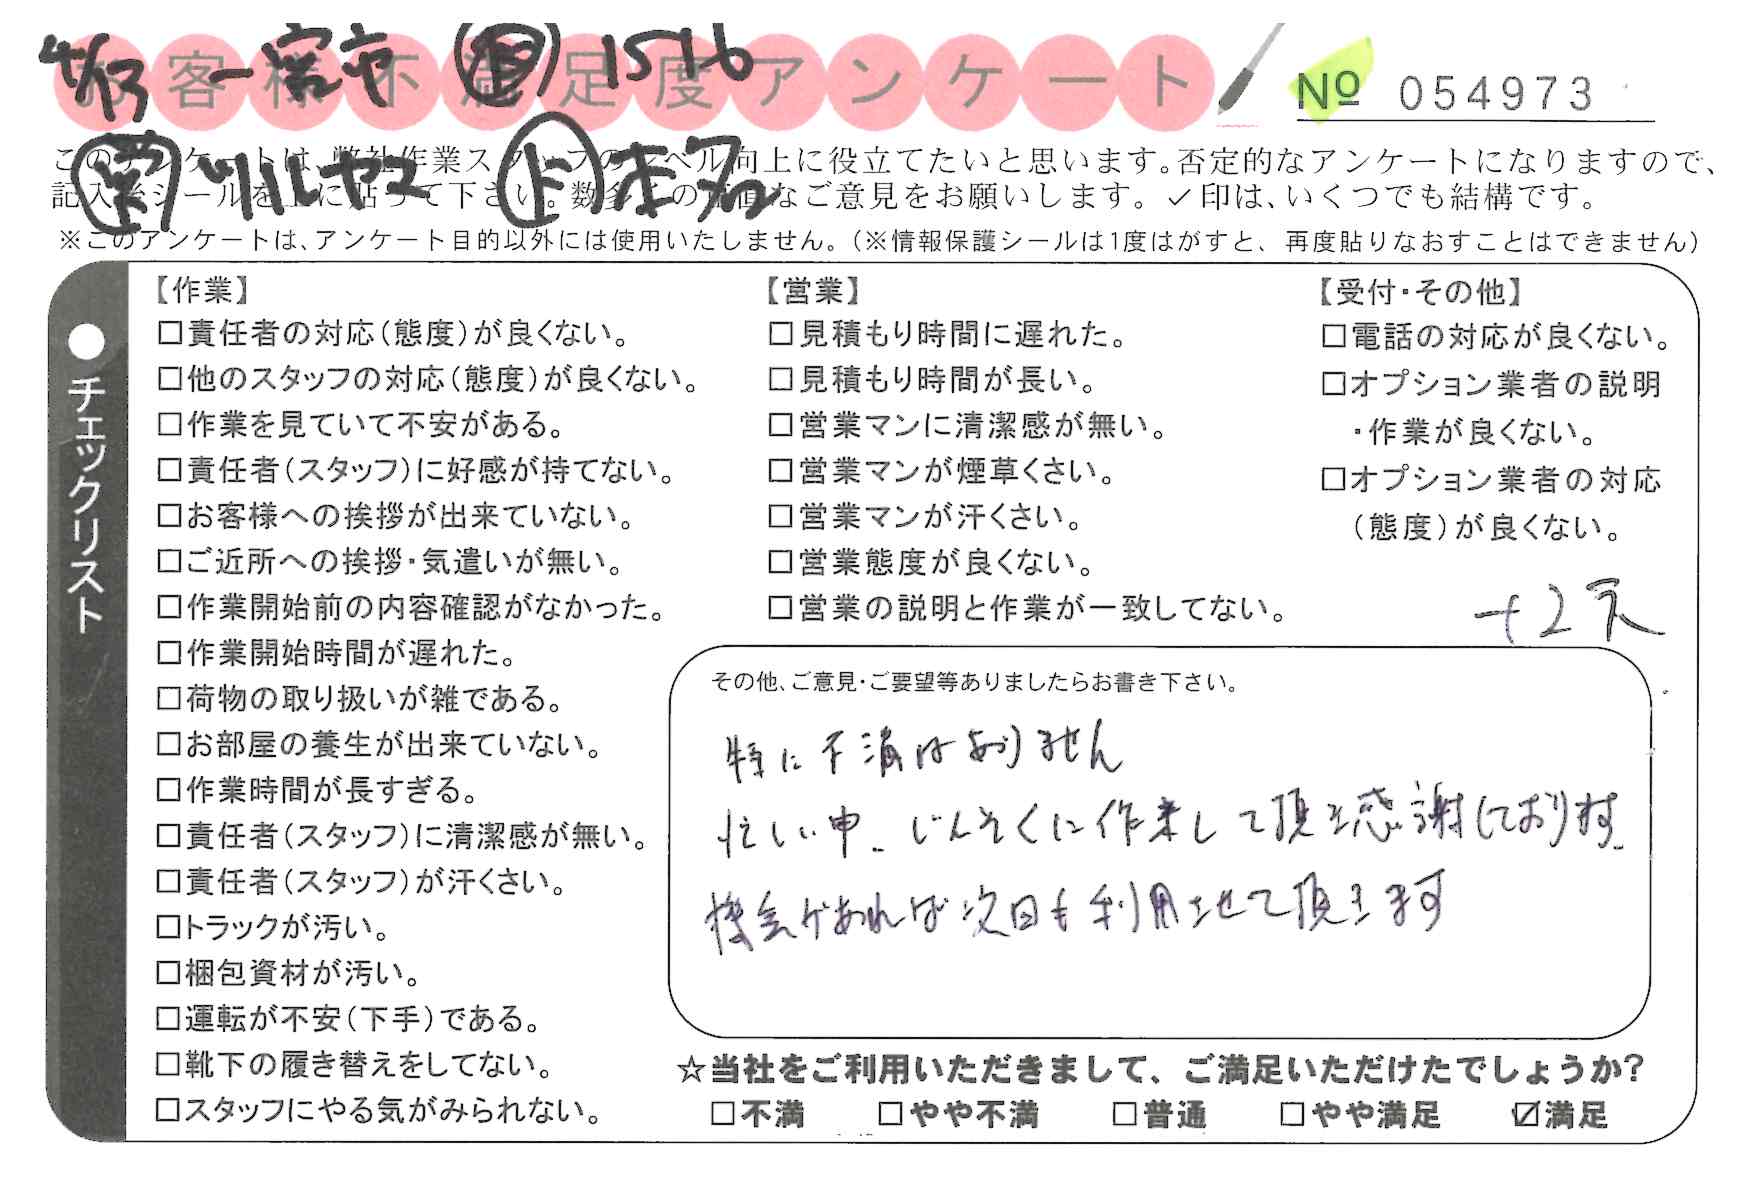 お客様不満足度アンケート
4/13 一宮市 1516
№ 054973
このアンケートは、弊社作業スタッフのレベル向上に役立てたいと思います。否定的なアンケートになりますので、
記入後シールを上に貼って下さい。数多くの正直なご意見をお願いします。✓印は、いくつでも結構です。
※このアンケートは、アンケート目的以外には使用いたしません。(※情報保護シールは1度はがすと、再度貼りなおすことはできません)
●チェックリスト
【作業】
□責任者の対応(態度)が良くない。
□他のスタッフの対応(態度)が良くない。
□作業を見ていて不安がある。
□責任者(スタッフ)に好感が持てない。
□お客様への挨拶が出来ていない。
□ご近所への挨拶・気遣いが無い。
□作業開始前の内容確認がなかった。
□作業開始時間が遅れた。
□荷物の取り扱いが雑である。
□お部屋の養生が出来ていない。
□作業時間が長すぎる。
□責任者(スタッフ)に清潔感が無い。
□責任者(スタッフ)が汗くさい。
□トラックが汚い。
□梱包資材が汚い。
□運転が不安(下手)である。
□靴下の履き替えをしてない。
□スタッフにやる気がみられない。
【営業】
□見積もり時間に遅れた。
□見積もり時間が長い。
□営業マンに清潔感が無い。
□営業マンが煙草くさい。
□営業マンが汗くさい。
□営業態度が良くない。
□営業の説明と作業が一致してない。
【受付・その他】
□電話の対応が良くない。
□オプション業者の説明
・作業が良くない。
□オプション業者の対応
(態度)が良くない。
その他、ご意見・ご要望等ありましたらお書き下さい。
特に不満はありません
忙しい中、じんそくに作業して頂き感謝しております。
機会があれば次回も利用させて頂きます
☆当社をご利用いただきまして、ご満足いただけたでしょうか?
□不満 □やや不満 □普通 □やや満足 ☑満足